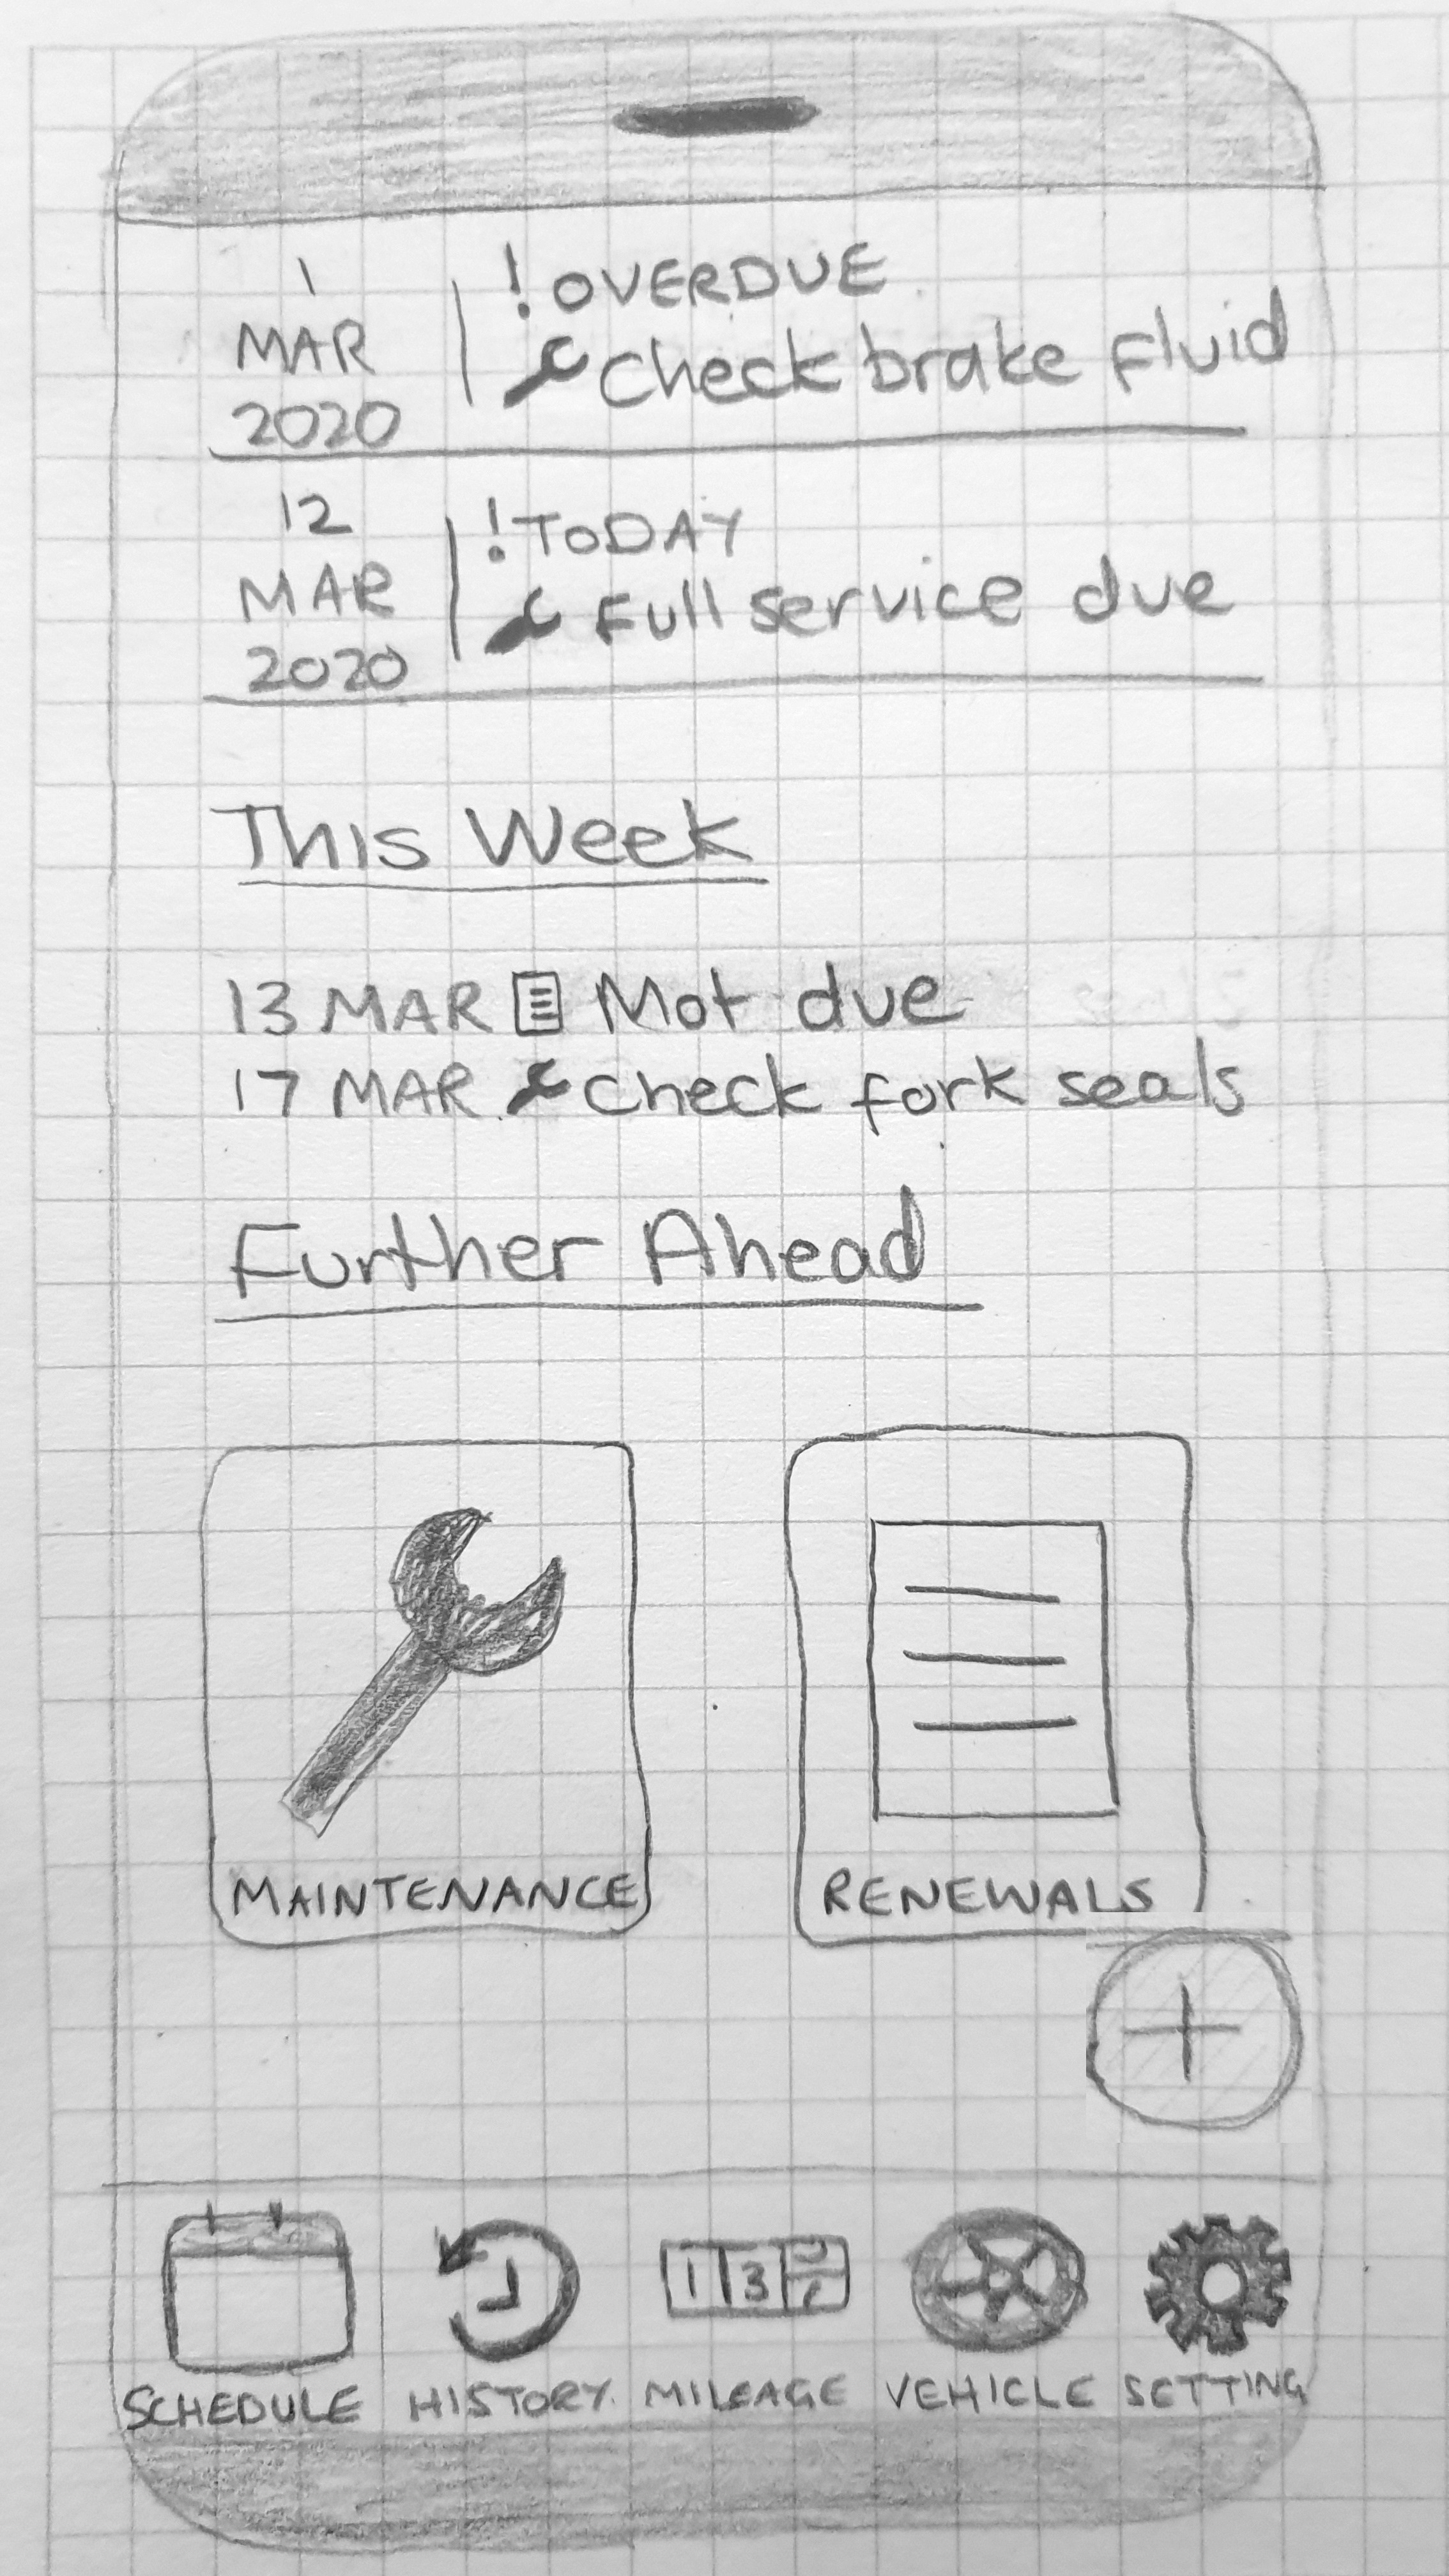 1
MAR
2020
! OVERDUE
Check brake fluid
12
MAR
2020
! TODAY
Full service due
This Week
13 MAR Mot due
17 MAR Check fork seals
Further Ahead
MAINTENANCE
RENEWALS
+
1 3
SCHEDULE HISTORY MILEAGE VEHICLE SETTING